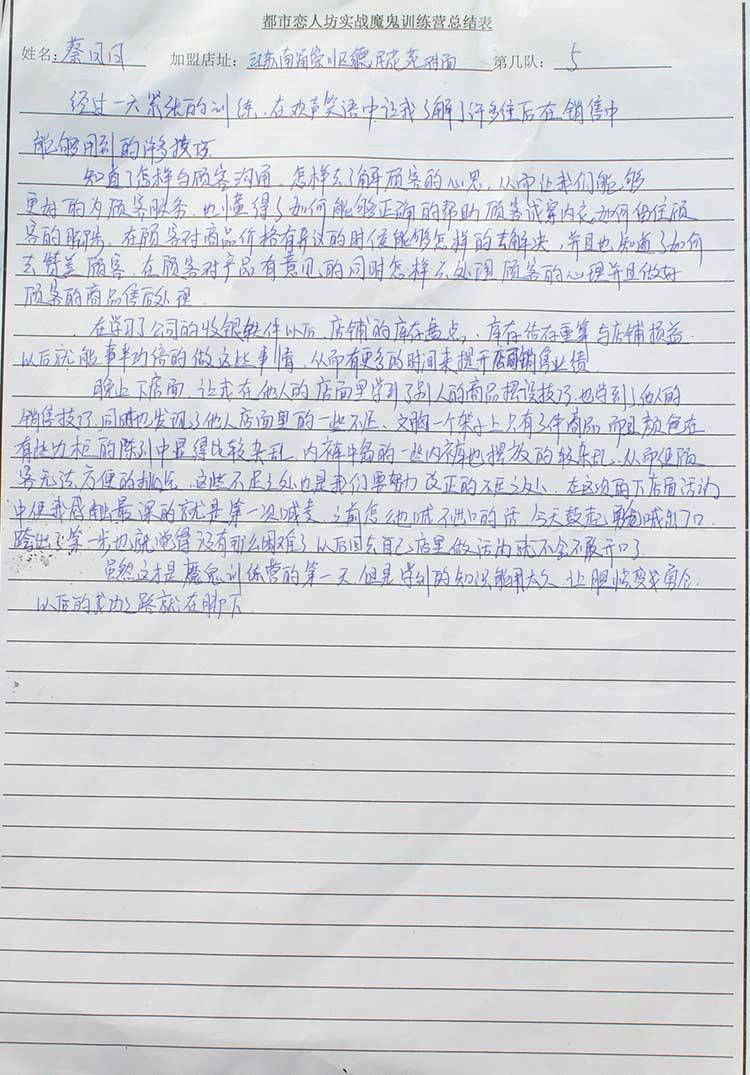 都市恋人坊实战魔鬼训练营总结表
姓名：蔡风风 加盟店址：江苏南通崇川区德民花苑对面 第几队：5
经过一天紧张的训练、在欢声笑语中让我了解了许多往后在销售中
能够用到的许多技巧
知道了怎样与顾客沟通，怎样去了解顾客的心思，从而让我们能够
更好的为顾客服务，也懂得了如何能够正确的帮助顾客试穿内衣，如何留住顾
客的脚步，在顾客对商品价格有异议的时候能够怎样的去解决，并且也知道了如何
去赞美顾客，在顾客对产品有意见的同时怎样去处理顾客的心理并且做好
顾客的商品售后处理
在学习了公司的收银软件以后，店铺的库存盘点，库存结存重算与店铺损益
以后就能事半功倍的做这些事情，从而有更多的时间来提升店面销售业绩
晚上下店面，让我在他人的店面里学到了别人的商品摆设技巧，也学到了他人的
销售技巧，同时也发现了他人店面里的一些不足、文胸一个架子上只有3件商品，而且颜色在
有些边柜的陈列中显得比较杂乱，内裤中岛的一些内裤也摆放的较杂乱，从而使顾
客无法方便的挑选，这些不足之处也是我们要努力改正的不足之处、在这次的下店面活动
中使我感触最深的就是第一次喊麦，之前怎么也喊不出口的话，今天鼓起勇气喊出了口
跨出了第一步也就觉得没有那么困难了以后回去自己店里做活动就不会不敢开口了
虽然这才是魔鬼训练营的第一天但是学到的知识能用太久，让胆怯变成勇气，
以后的成功之路就在脚下